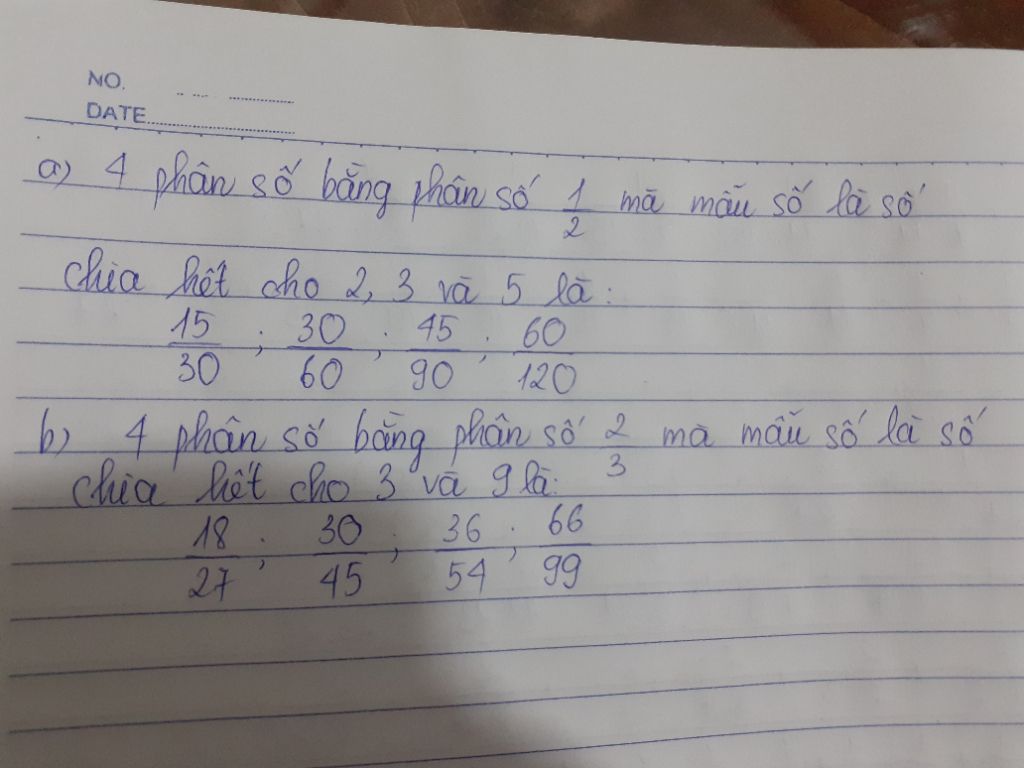 NO.
DATE
a) 4 phân số bằng phân số 1/2 mà mẫu số là số
chia hết cho 2, 3 và 5 là:
15/30 ; 30/60 ; 45/90 ; 60/120
b) 4 phân số bằng phân số 2/3 mà mẫu số là số
chia hết cho 3 và 9 là:
18/27 ; 30/45 ; 36/54 ; 66/99